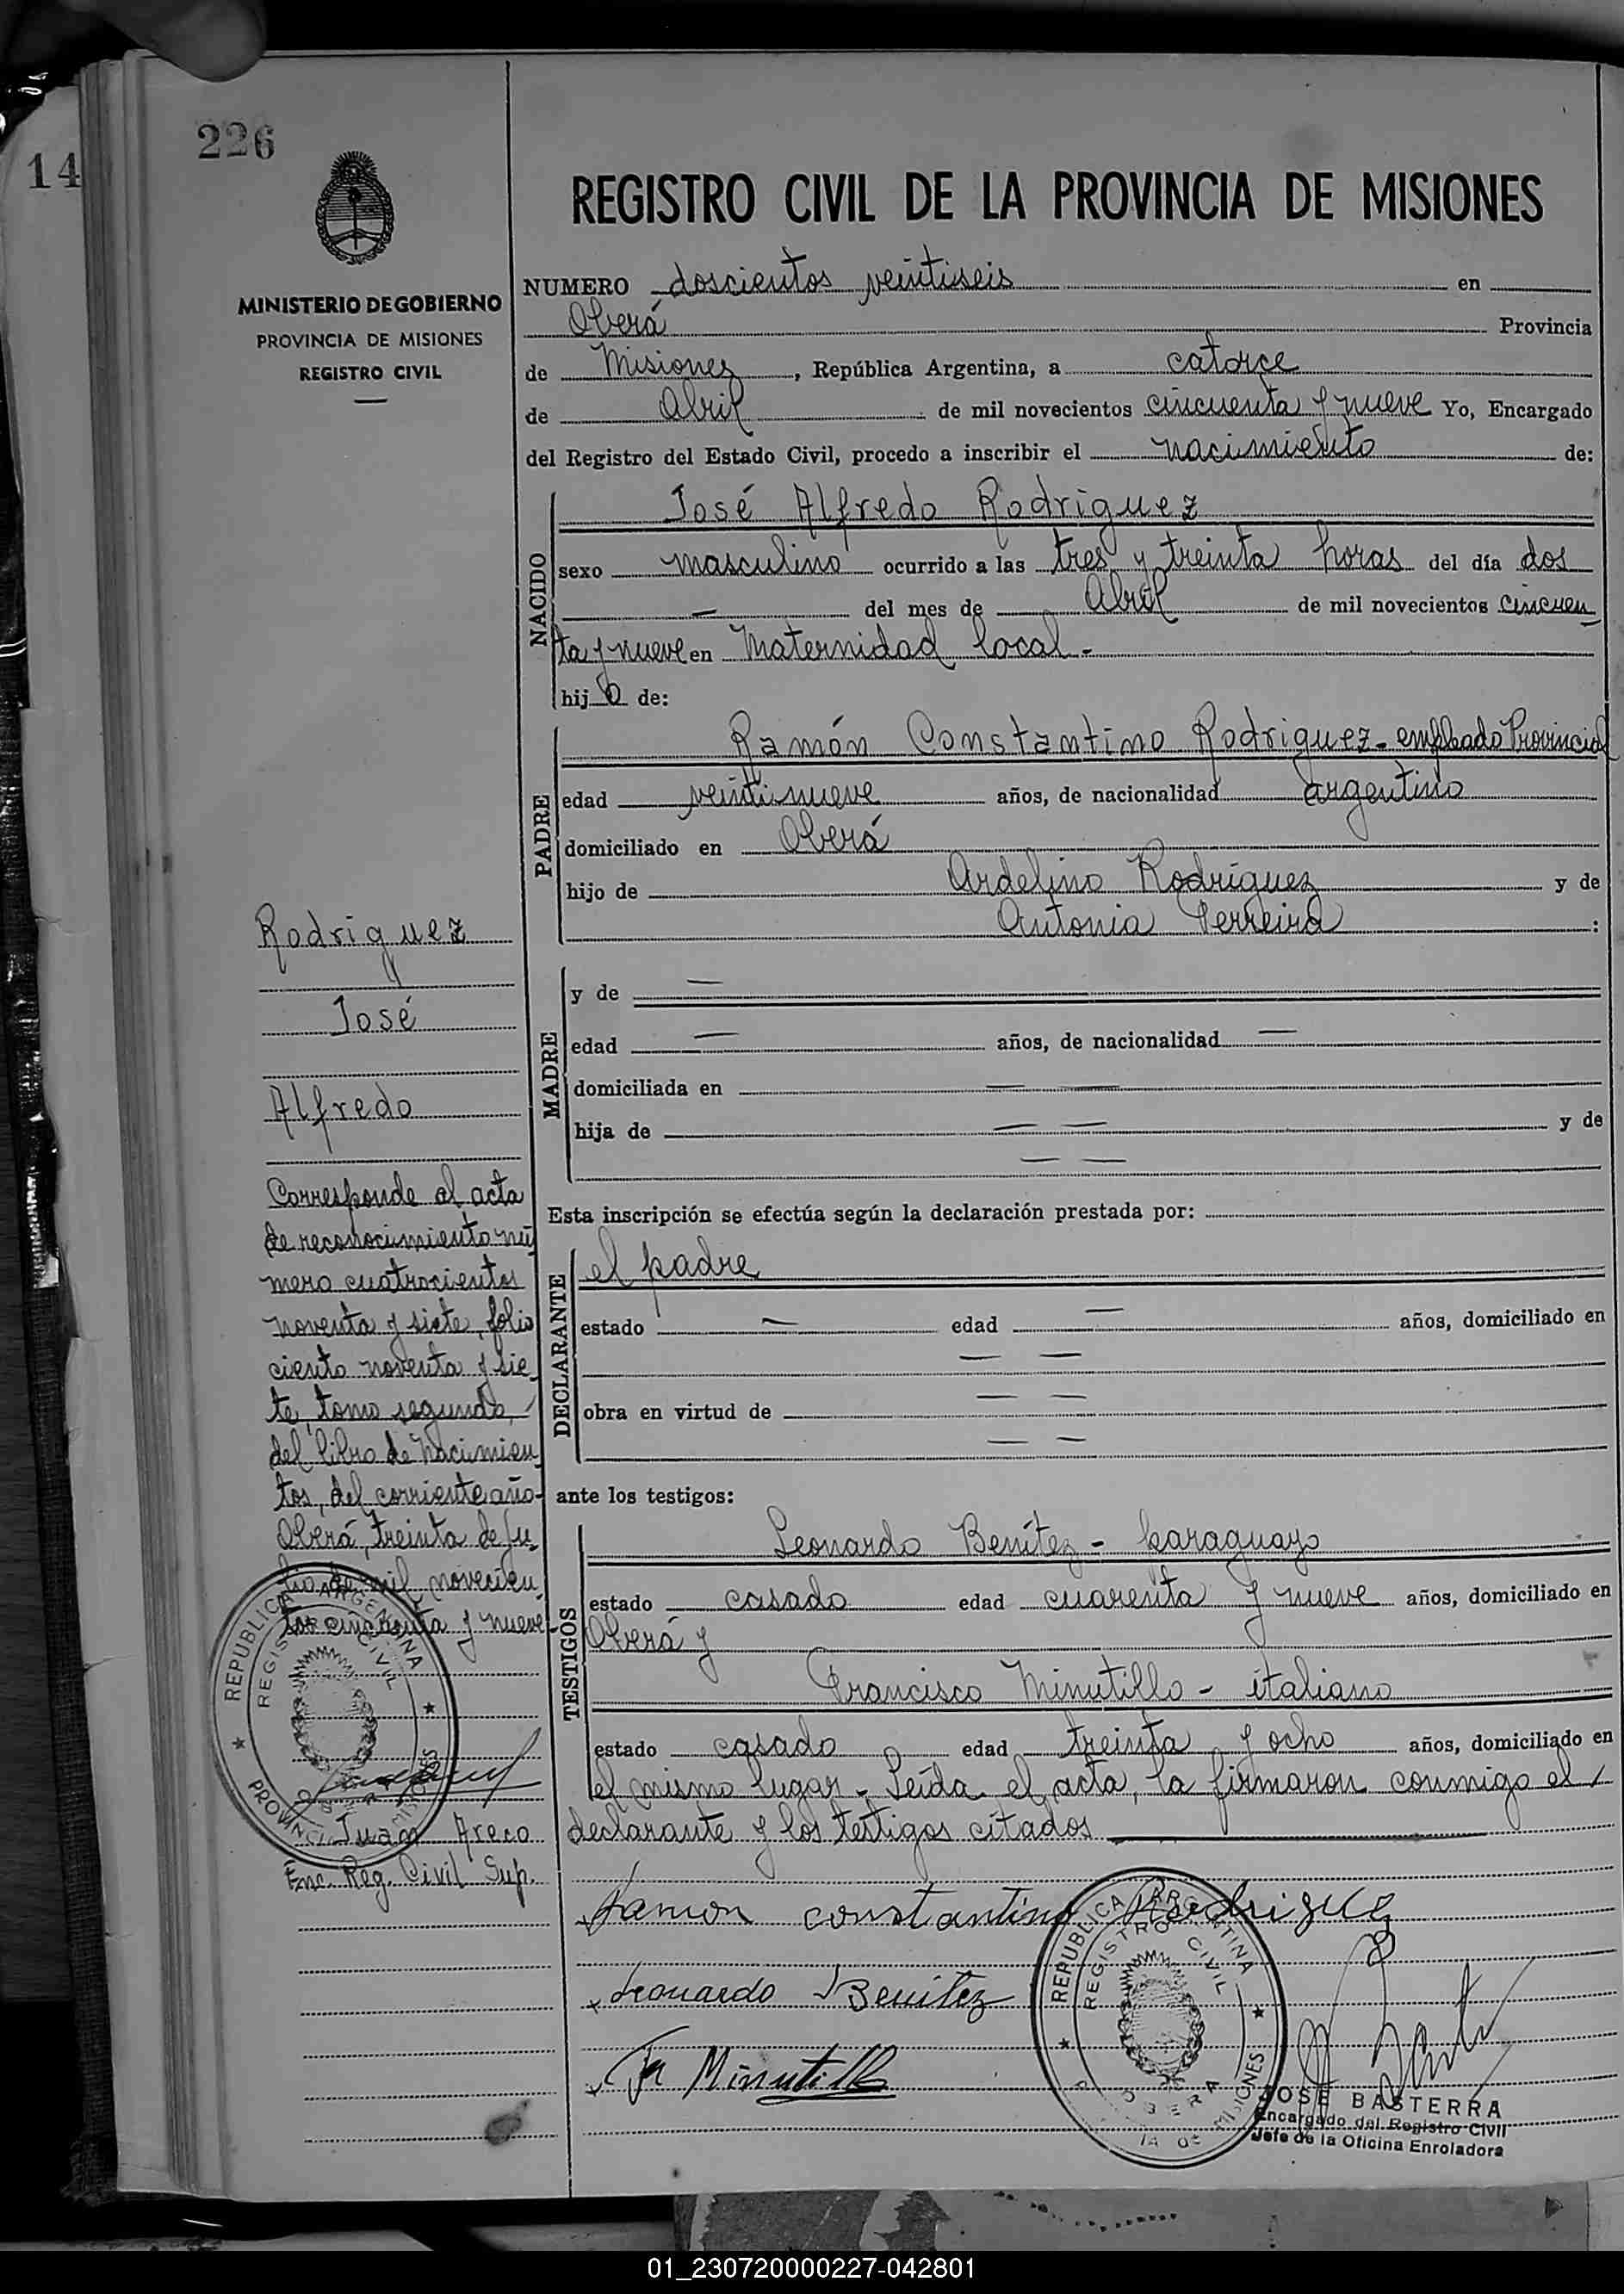 14
226
MINISTERIO DE GOBIERNO
PROVINCIA DE MISIONES
REGISTRO CIVIL
REGISTRO CIVIL DE LA PROVINCIA DE MISIONES
NUMERO doscientos veintiseis en
Oberá Provincia
de Misiones, República Argentina, a catorce
de Abril de mil novecientos cincuenta y nueve Yo, Encargado
del Registro del Estado Civil, procedo a inscribir el nacimiento de:
NACIDO
José Alfredo Rodriguez
sexo masculino ocurrido a las tres y treinta horas del día dos
— del mes de Abril de mil novecientos cincuen
ta y nueve en Maternidad local.-
hijo de:
PADRE
Ramón Constantino Rodriguez - empleado Provincial
edad veintinueve años, de nacionalidad argentino
domiciliado en Oberá
hijo de Ardelino Rodríguez y de
Antonia Ferreira :
MADRE
y de —
edad — años, de nacionalidad —
domiciliada en — —
hija de — — y de
— —
Esta inscripción se efectúa según la declaración prestada por:
DECLARANTE
el padre
estado — edad — años, domiciliado en
— —
obra en virtud de — —
— —
ante los testigos:
TESTIGOS
Leonardo Benítez - paraguayo
estado casado edad cuarenta y nueve años, domiciliado en
Oberá y
Francisco Minutillo - italiano
estado casado edad treinta y ocho años, domiciliado en
el mismo lugar - Leída el acta, la firmaron conmigo el
declarante y los testigos citados
Ramon constantino Rodriguez
Leonardo Benitez
Fr Minutillo
REPUBLICA ARGENTINA
REGISTRO CIVIL
OBERA
PROVINCIA DE MISIONES
JOSE BASTERRA
Encargado del Registro Civil
Jefe de la Oficina Enroladora
Rodriguez
José
Alfredo
Corresponde al acta
de reconocimiento nú
mero cuatrocientos
noventa y siete, folio
ciento noventa y sie
te, tomo segundo,
del libro de Nacimien
tos, del corriente año-
Oberá, treinta de Ju
lio de mil novecien
tos cincuenta y nueve-
REPUBLICA ARGENTINA
REGISTRO CIVIL
PROVINCIA DE MISIONES
Juan Areco
Enc. Reg. Civil Sup.
01_230720000227-042801